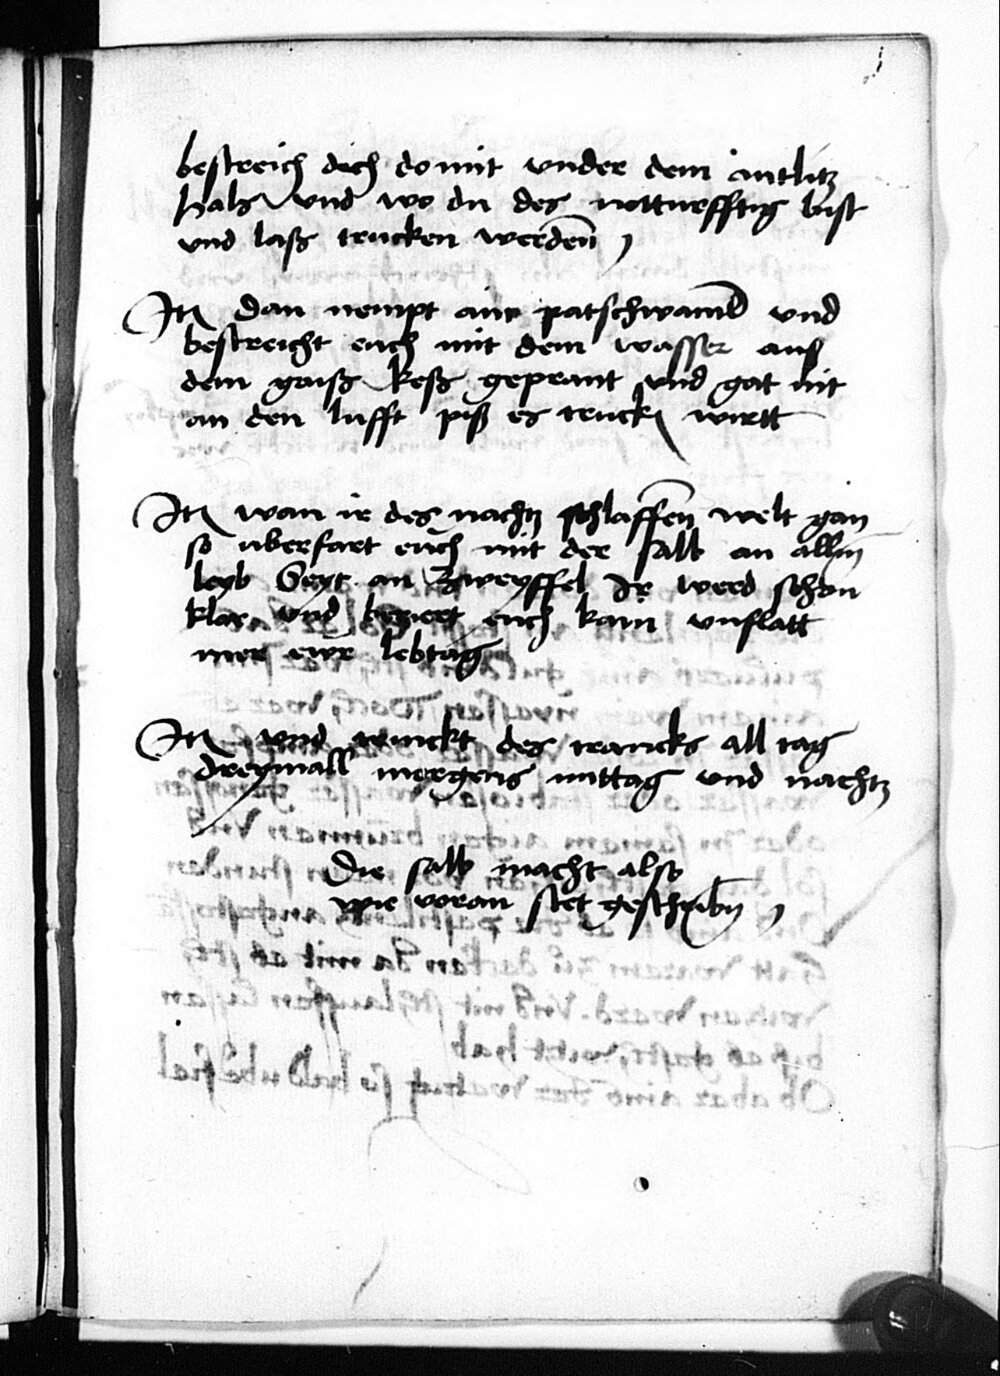 bestreich dich do mit vnder dem antlitz
hals vnd wo du des notturfftig bist
vnd laß trucken werden
Itm dan nempt ain patschwamb vnd
bestreicht euch mit dem wasser aus
dem gaiß keß geprant vnd gat nit
an den lufft piß es truckn wirtt
Itm wan ir des nachtz schlaffen welt gan
so uberfart euch mit der salb an allem
leyb Seyt an Zweyffel Ir werd schon
klar vnd euch kain vnflatt
mer ewr lebtag
Itm vnd trinckt des trancks all tag
dreymall morgens mittag vnd nachtz
Die salb macht also
wie voran stet geschribn